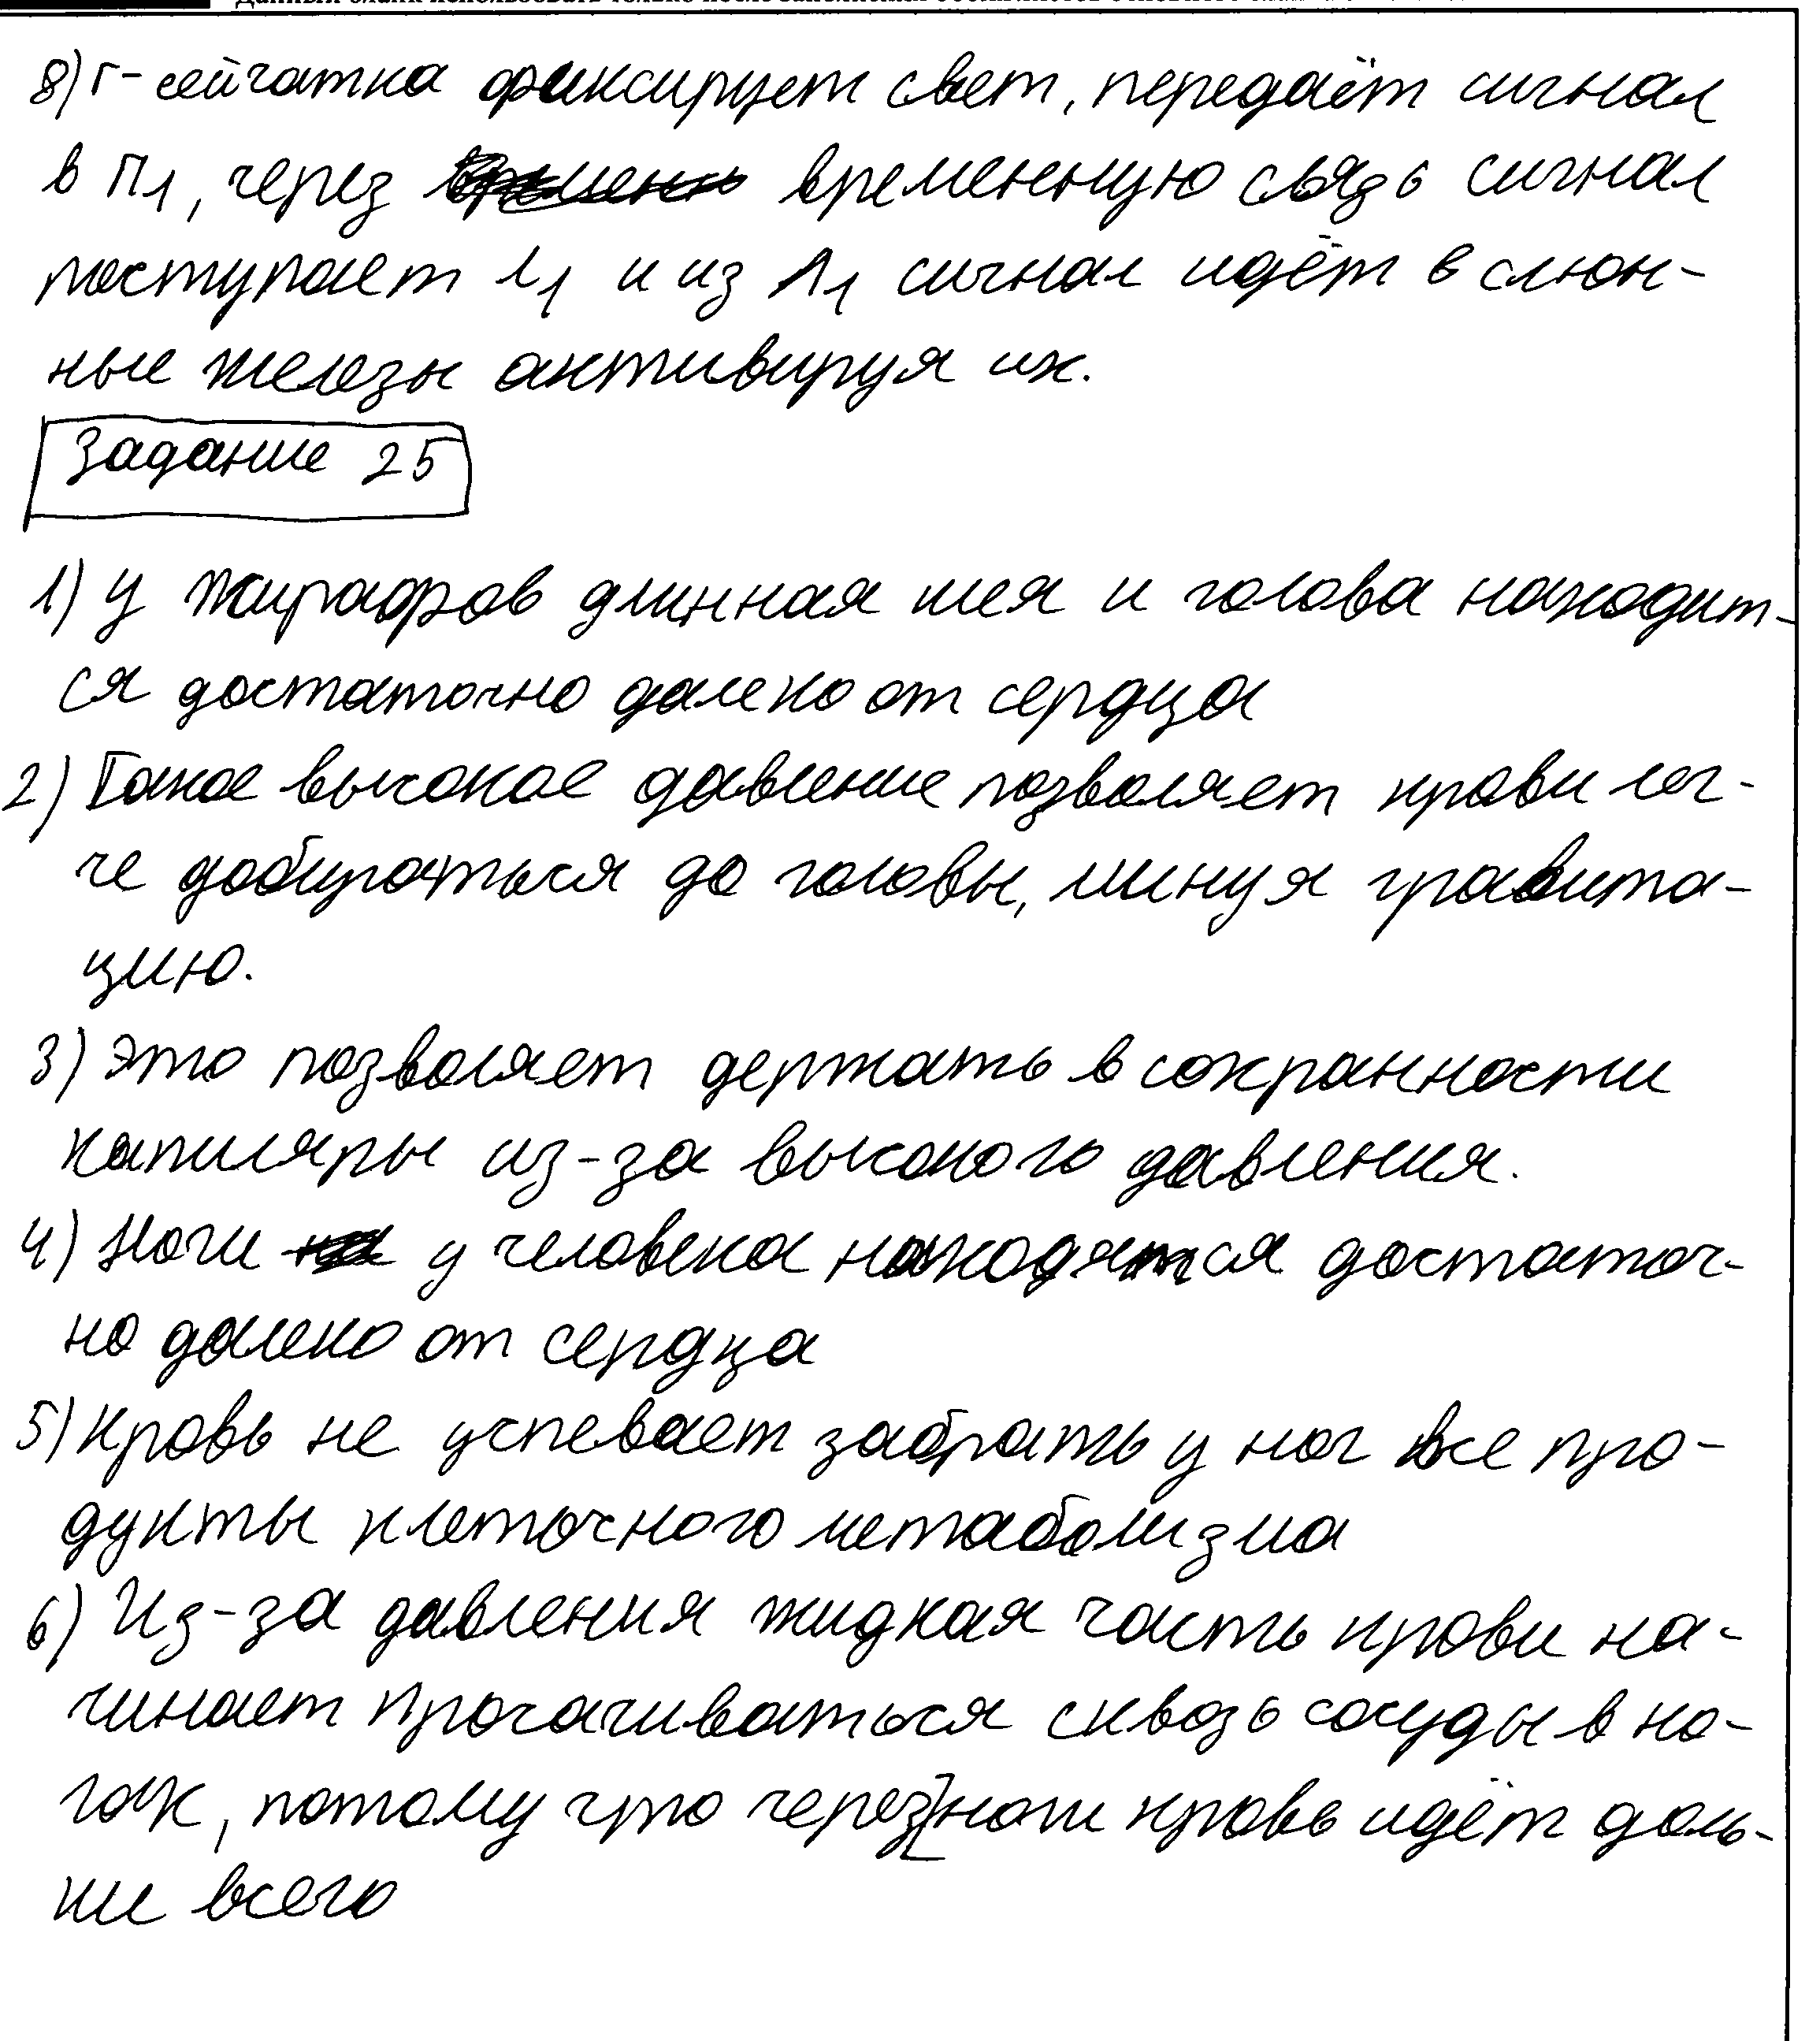 8) Г- сейчатка фиксирует свет, передаёт сигнал
в П1, через временную связь сигнал
поступает и из Л1 сигнал идёт в слюн-
ные железы активируя их.
Задание 25
1) У жирафов длинная шея и голова находит-
ся достаточно далеко от сердца
2) Такое высокое давление позволяет крови лег-
че добираться до головы, минуя гравита-
цию.
3) Это позволяет держать в сохранности
капиляры из-за высокого давления.
4) Ноги у человека находятся достаточ-
но далеко от сердца
5) Кровь не успевает забрать у ног все про-
дукты клеточного метаболизма
6) Из-за давления жидкая часть крови на-
чинает просачиваться сквозь сосуды в но-
гах, потому что через ноги кровь идёт доль-
ше всего